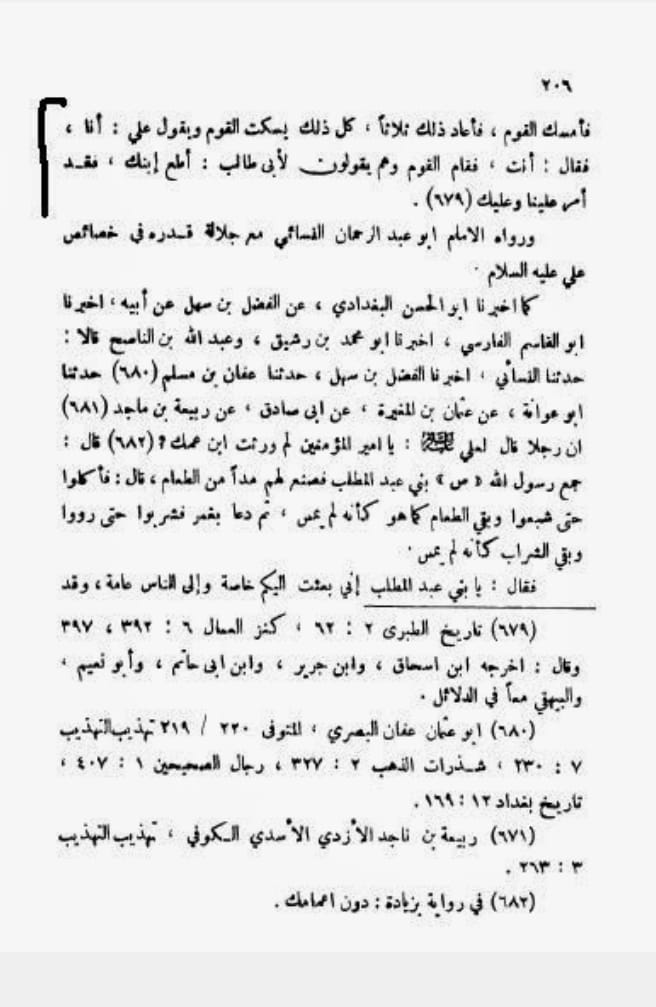 ٢٠٦
فأمسك القوم ، فأعاد ذلك ثلاثاً ، كل ذلك يسكت القوم ويقول علي : أنا ،
فقال : أنت ، فقام القوم وهم يقولون لأبي طالب : أطع إبنك ، فقد
أمر علينا وعليك (٦٧٩) .
ورواه الامام ابو عبد الرحمان النسائي مع جلالة قدره في خصائص
علي عليه السلام .
كما اخبرنا ابو الحسن البغدادي ، عن الفضل بن سهل عن أبيه ، اخبرنا
ابو القاسم الفارسي ، اخبرنا ابو محمد بن رشيق ، وعبد الله بن الناصح قالا :
حدثنا النسائي ، اخبرنا الفضل بن سهل ، حدثنا عفان بن مسلم (٦٨٠) حدثنا
ابو عوانة ، عن عثمان بن المغيرة ، عن ابى صادق ، عن ربيعة بن ماجد (٦٨١)
ان رجلا قال لعلي : يا امير المؤمنين لم ورثت ابن عمك ؟ (٦٨٢) قال :
جمع رسول الله « ص » بني عبد المطلب فصنع لهم مداً من الطعام ، قال : فأكلوا
حتى شبعوا وبقي الطعام كما هو كأنه لم يمس ، ثم دعا بغمر فشربوا حتى رووا
وبقي الشراب كأنه لم يمس .
فقال : يا بني عبد المطلب إني بعثت اليكم خاصة وإلى الناس عامة ، وقد
(٦٧٩) تاريخ الطبرى ٢ : ٦٢ ، كنز العمال ٦ : ٣٩٢ ، ٣٩٧
وقال : اخرجه ابن اسحاق ، وابن جرير ، وابن ابى حاتم ، وأبو نعيم ،
والبيهقي معاً في الدلائل .
(٦٨٠) ابو عثمان عفان البصري ، المتوفى ٢٢٠ / ٢١٩ تهذيب التهذيب
٧ : ٢٣٠ ، شذرات الذهب ٢ : ٣٢٧ ، رجال الصحيحين ١ : ٤٠٧ ،
تاريخ بغداد ١٢ : ١٦٩ .
(٦٧١) ربيعة بن ناجد الأزدي الأسدي الكوفي ، تهذيب التهذيب
٣ : ٢٦٣ .
(٦٨٢) في رواية بزيادة : دون اعمامك .